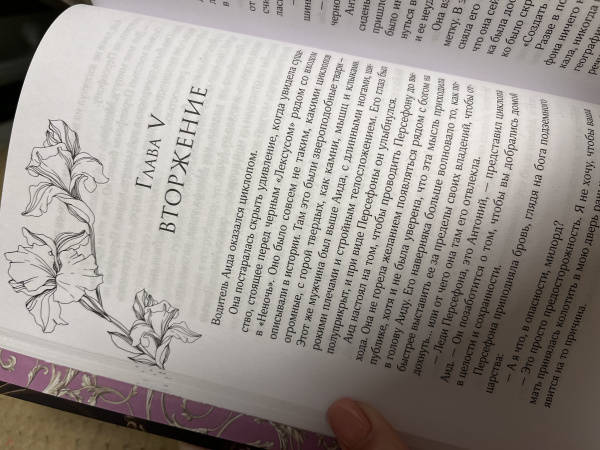 Глава V
Вторжение
Водитель Аида оказался циклопом.
Она постаралась скрыть удивление, когда увидела суще-
ство, стоящее перед черным «Лексусом» рядом со входом
в «Неночь». Оно было совсем не таким, какими циклопов
описывали в истории. Там это были звероподобные твари –
огромные, с горой твердых, как камни, мышц и клыками.
Этот же мужчина был выше Аида, с длинными ногами, ши-
рокими плечами и стройным телосложением. Его глаз был
полуприкрыт, и при виде Персефоны он улыбнулся.
Аид настоял на том, чтобы проводить Персефону до вы-
хода. Она не горела желанием появляться рядом с богом на
публике, хотя и не была уверена, что эта мысль приходила
в голову Аиду. Его наверняка больше волновало то, как по-
быстрее выставить ее за пределы своих владений, чтобы от-
дохнуть... или от чего она там его отвлекла.
— Леди Персефона, это Антоний, — представил циклопа
Аид. — Он позаботится о том, чтобы вы добрались домой
в целости и сохранности.
Персефона приподняла бровь, глядя на бога подземного
царства:
— А я что, в опасности, милорд?
— Это просто предосторожность. Я не хочу, чтобы ваша
мать принялась колотить в мою дверь
явится на то причина.